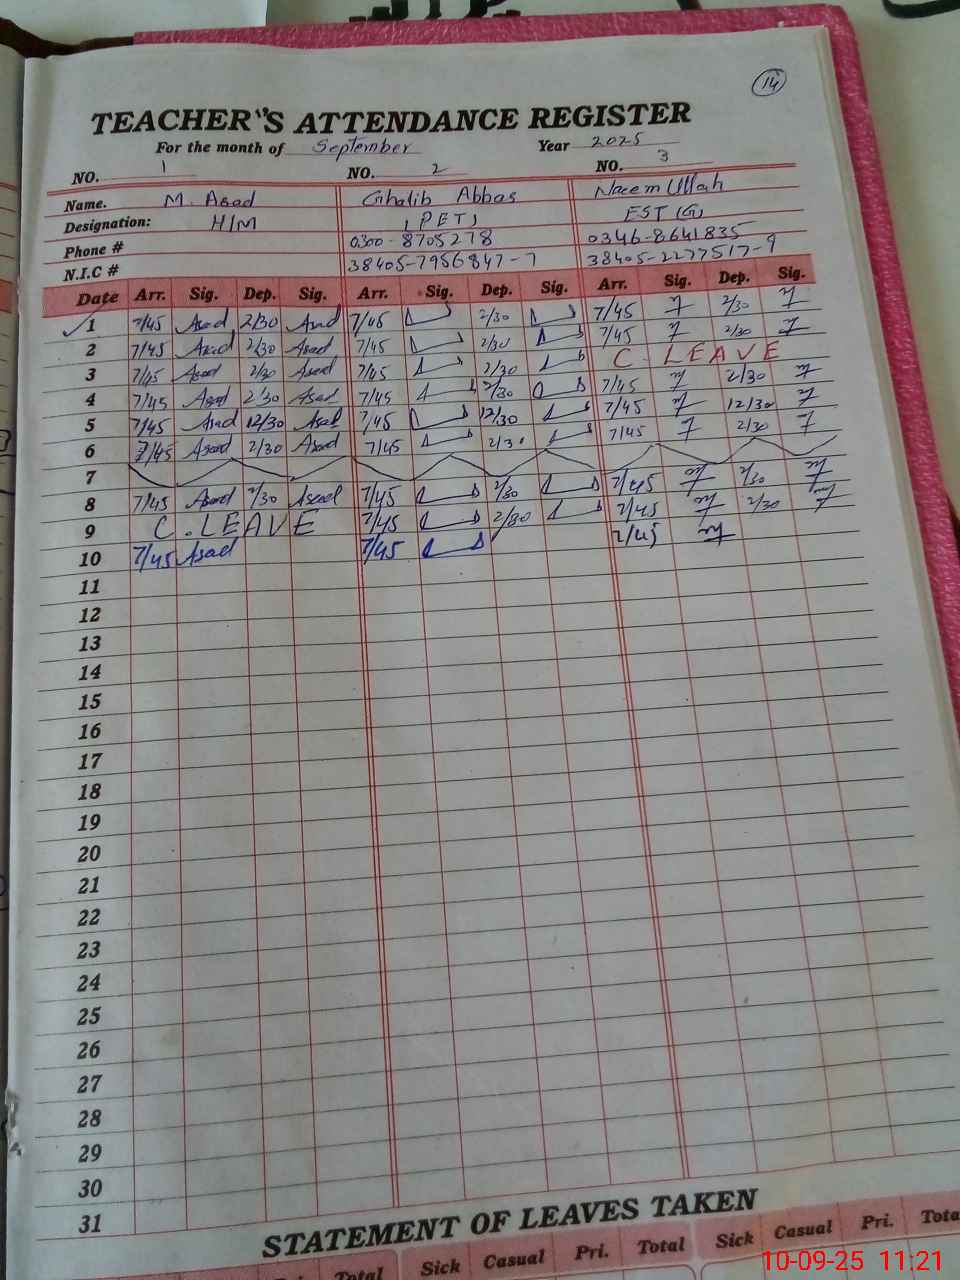 14
TEACHER'S ATTENDANCE REGISTER
For the month of September Year 2025
NO. 1 NO. 2 NO. 3
Name. M. Asad Ghalib Abbas Naeem Ullah
Designation: H/M (PET) EST (G)
Phone # 0300-8705278 0346-8641835
N.I.C # 38405-7956847-7 38405-2277517-9
Date Arr. Sig. Dep. Sig. Arr. Sig. Dep. Sig. Arr. Sig. Dep. Sig.
1 7/45 Asad 2/30 Asad 7/45 2/30 7/45 2/30
2 7/45 Asad 2/30 Asad 7/45 2/30 7/45 2/30
3 7/45 Asad 2/30 Asad 7/45 2/30 C. LEAVE
4 7/45 Asad 2/30 Asad 7/45 2/30 7/45 2/30
5 7/45 Asad 12/30 Asad 7/45 12/30 7/45 12/30
6 7/45 Asad 2/30 Asad 7/45 2/30 7/45 2/30
7
8 7/45 Asad 2/30 Asad 7/45 2/30 7/45 2/30
9 C. LEAVE 7/45 2/30 7/45 2/30
10 7/45 Asad 7/45 7/45
11
12
13
14
15
16
17
18
19
20
21
22
23
24
25
26
27
28
29
30
31
STATEMENT OF LEAVES TAKEN
Pri. Total Sick Casual Pri. Total Sick Casual Pri. Tota
10-09-25 11:21